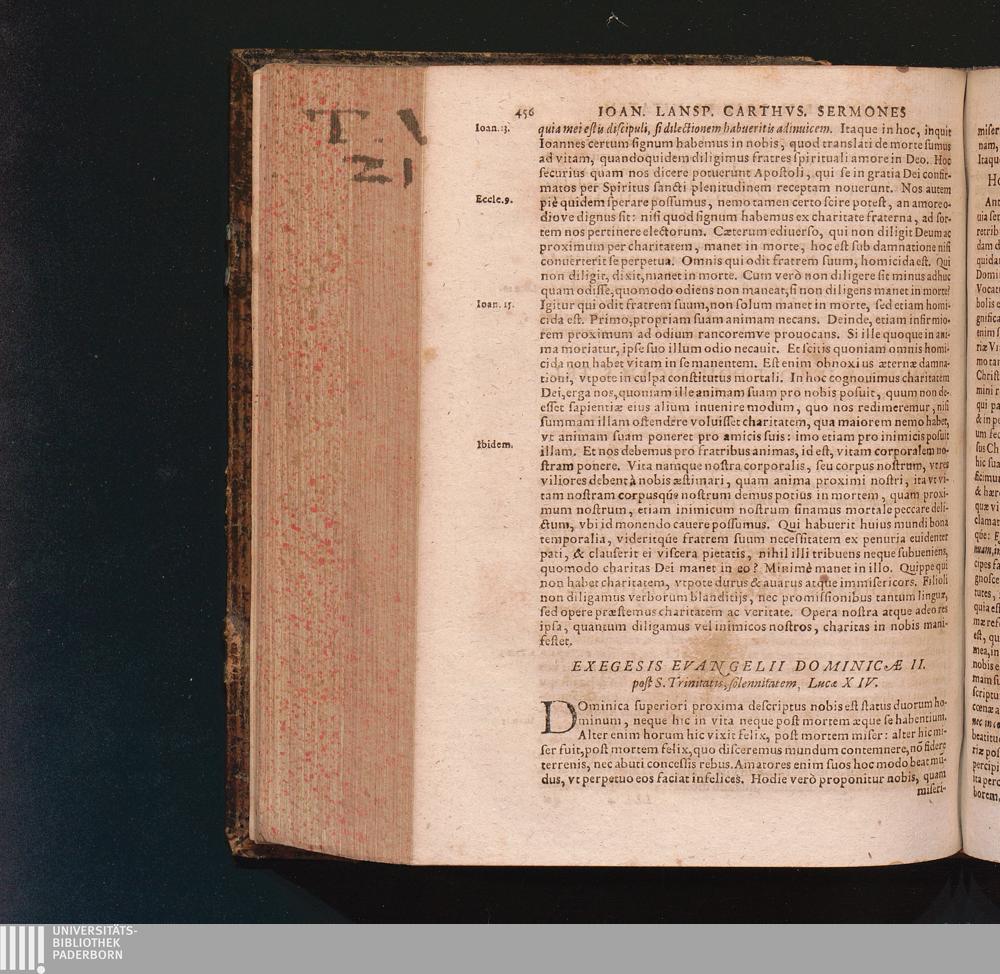 T. V
21
456 IOAN. LANSP. CARTHVS. SERMONES
Ioan. 13.
quia mei estis discipuli, si dilectionem habueritis adinuicem. Itaque in hoc, inquit
Ioannes certum signum habemus in nobis, quod translati de morte sumus
ad vitam, quandoquidem diligimus fratres spirituali amore in Deo. Hoc
securius quam nos dicere potuerunt Apostoli, qui se in gratia Dei confir-
matos per Spiritus sancti plenitudinem receptam nouerunt. Nos autem
Eccle. 9.
piè quidem sperare possumus, nemo tamen certo scire potest, an amore o-
dio ve dignus sit: nisi quod signum habemus ex charitate fraterna, ad sor-
tem nos pertinere electorum. Cæterum ediuerso, qui non diligit Deum ac
proximum per charitatem, manet in morte, hoc est sub damnatione nisi
conuerterit se perpetua. Omnis qui odit fratrem suum, homicida est. Qui
non diligit, dixit, manet in morte. Cum verò non diligere sit minus adhuc
quam odisse, quomodo odiens non maneat, si non diligens manet in morte?
Ioan. 15.
Igitur qui odit fratrem suum, non solum manet in morte, sed etiam homi-
cida est. Primo, propriam suam animam necans. Deinde, etiam infirmio-
rem proximum ad odium rancoremve prouocans. Si ille quoque in ani-
ma moriatur, ipse suo illum odio necauit. Et scitis quoniam omnis homi-
cida non habet vitam in se manentem. Est enim obnoxius æternæ damna-
tioni, vtpote in culpa constitutus mortali. In hoc cognouimus charitatem
Dei, erga nos, quoniam ille animam suam pro nobis posuit, quum non de-
esset sapientiæ eius alium inuenire modum, quo nos redimeremur, nisi
summam illam ostendere voluisset charitatem, qua maiorem nemo habet,
vt animam suam poneret pro amicis suis: imo etiam pro inimicis posuit
Ibidem.
illam. Et nos debemus pro fratribus animas, id est, vitam corporalem no-
stram ponere. Vita namque nostra corporalis, seu corpus nostrum, vt res
viliores debent à nobis æstimari, quam anima proximi nostri, ita vt vi-
tam nostram corpusq́ue nostrum demus potius in mortem, quam proxi-
mum nostrum, etiam inimicum nostrum sinamus mortale peccare deli-
ctum, vbi id monendo cauere possumus. Qui habuerit huius mundi bona
temporalia, videritq́ue fratrem suum necessitatem ex penuria euidenter
pati, & clauserit ei viscera pietatis, nihil illi tribuens neque subueniens,
quomodo charitas Dei manet in eo? Minimè manet in illo. Quippe qui
non habet charitatem, vtpote durus & auarus atque immisericors. Filioli
non diligamus verborum blanditijs, nec promissionibus tantum linguæ,
sed opere præstemus charitatem ac veritate. Opera nostra atque adeo res
ipsa, quantum diligamus vel inimicos nostros, charitas in nobis mani-
festet.
EXEGESIS EVANGELII DOMINICÆ II.
post S. Trinitatis, solennitatem, Lucæ XIV.
Dominica superiori proxima descriptus nobis est status duorum ho-
minum, neque hic in vita neque post mortem æque se habentium.
Alter enim horum hic vixit felix, post mortem miser: alter hic mi-
ser fuit, post mortem felix, quo disceremus mundum contemnere, nō fidere
terrenis, nec abuti concessis rebus. Amatores enim suos hoc modo beat mū-
dus, vt perpetuo eos faciat infelices. Hodie verò proponitur nobis, quam
miseri-
UNIVERSITÄTS-
BIBLIOTHEK
PADERBORN